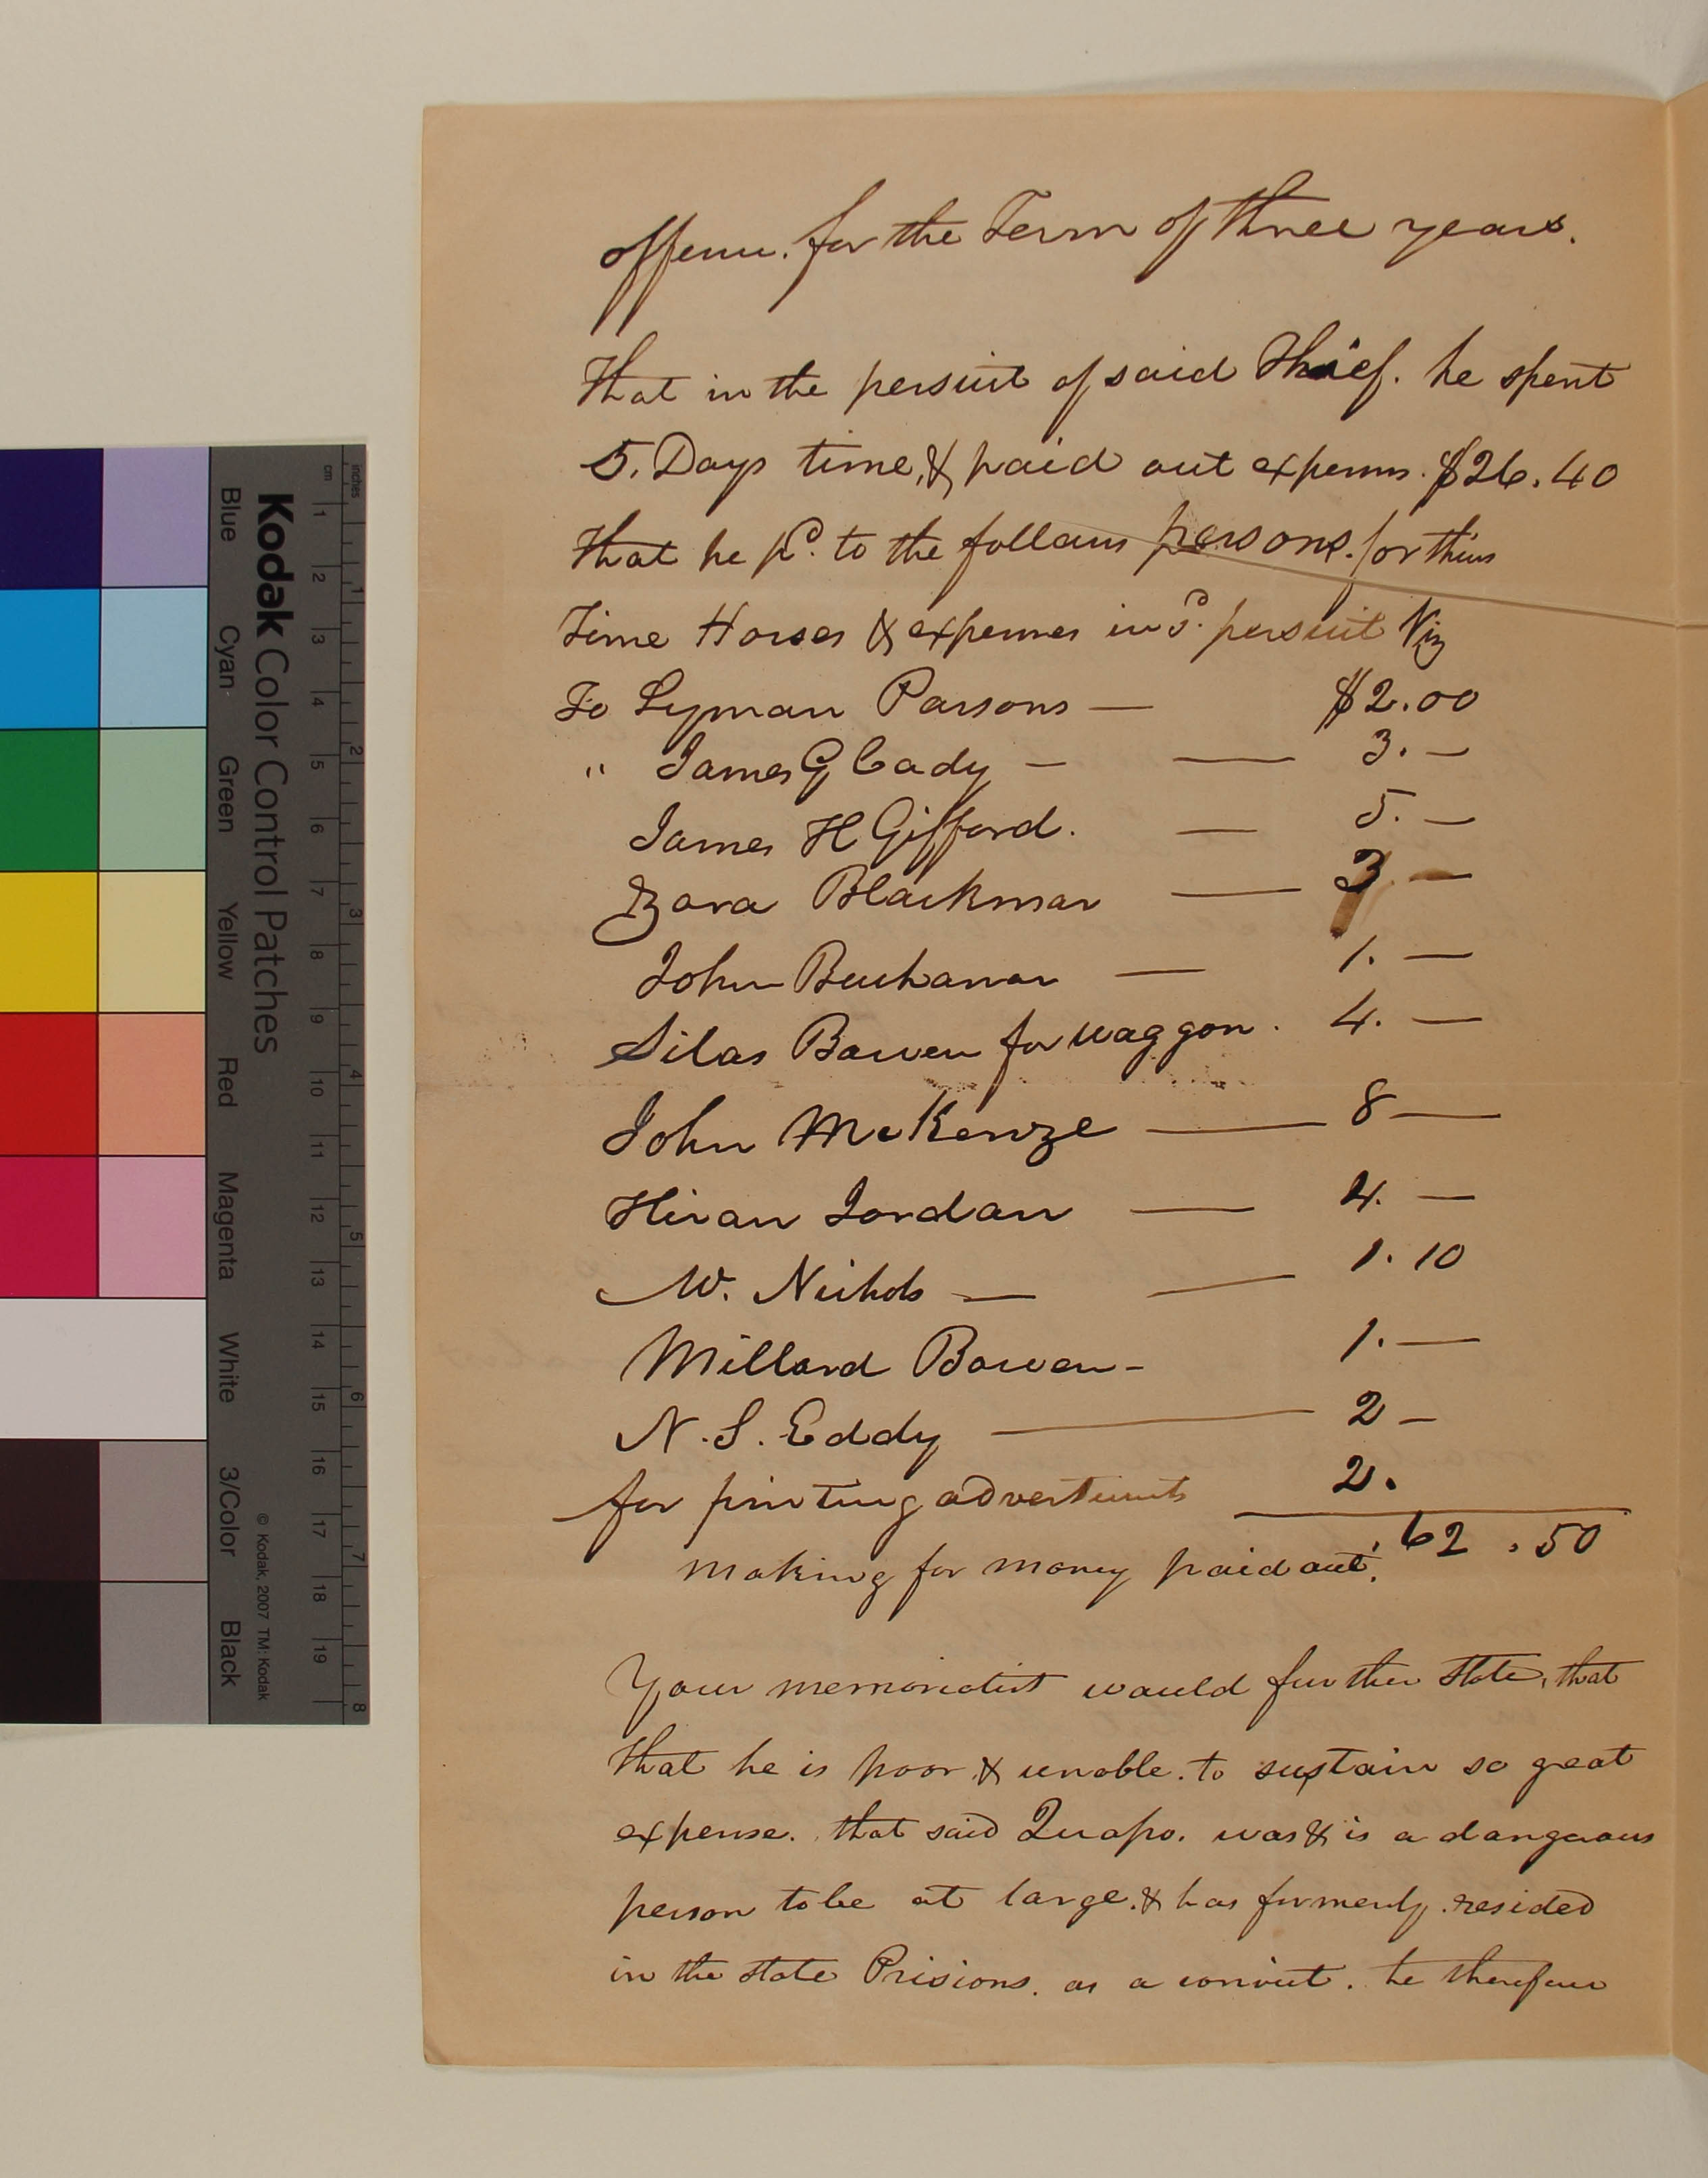 offence. for the Term of three years.
That in the persuit of said Thief. he spent
5. Days time, & paid out expenses. $26.40
That he pd. to the follows persons. for thier
Time Horses & expenses in sd. persuit Viz
To Lyman Parsons — $2.00
" James G Cady — — 3. —
James H Gifford. — 5. —
Zara Blackmar — 3. —
John Buchanan — 1. —
Silas Bowen for waggon. 4. —
John McKenze — 8 —
Hiram Jordan — 4. —
W. Nichols — — 1.10
Millard Bowen - 1. —
N. S. Eddy — 2 —
for printing advertisments 2.
making for money paid out. 62.50
Your memorialist would further state, that
that he is poor & unable. to sustain so great
expense. that said Quapo. was & is a dangerous
person to be at large. & has formerly. resided
in the state Prisions. as a convict. he therefore
Kodak Color Control Patches
Blue Cyan Green Yellow Red Magenta White 3/Color Black
© Kodak, 2007 TM: Kodak
inches 1 2 3 4 5 6 7 8
cm 1 2 3 4 5 6 7 8 9 10 11 12 13 14 15 16 17 18 19